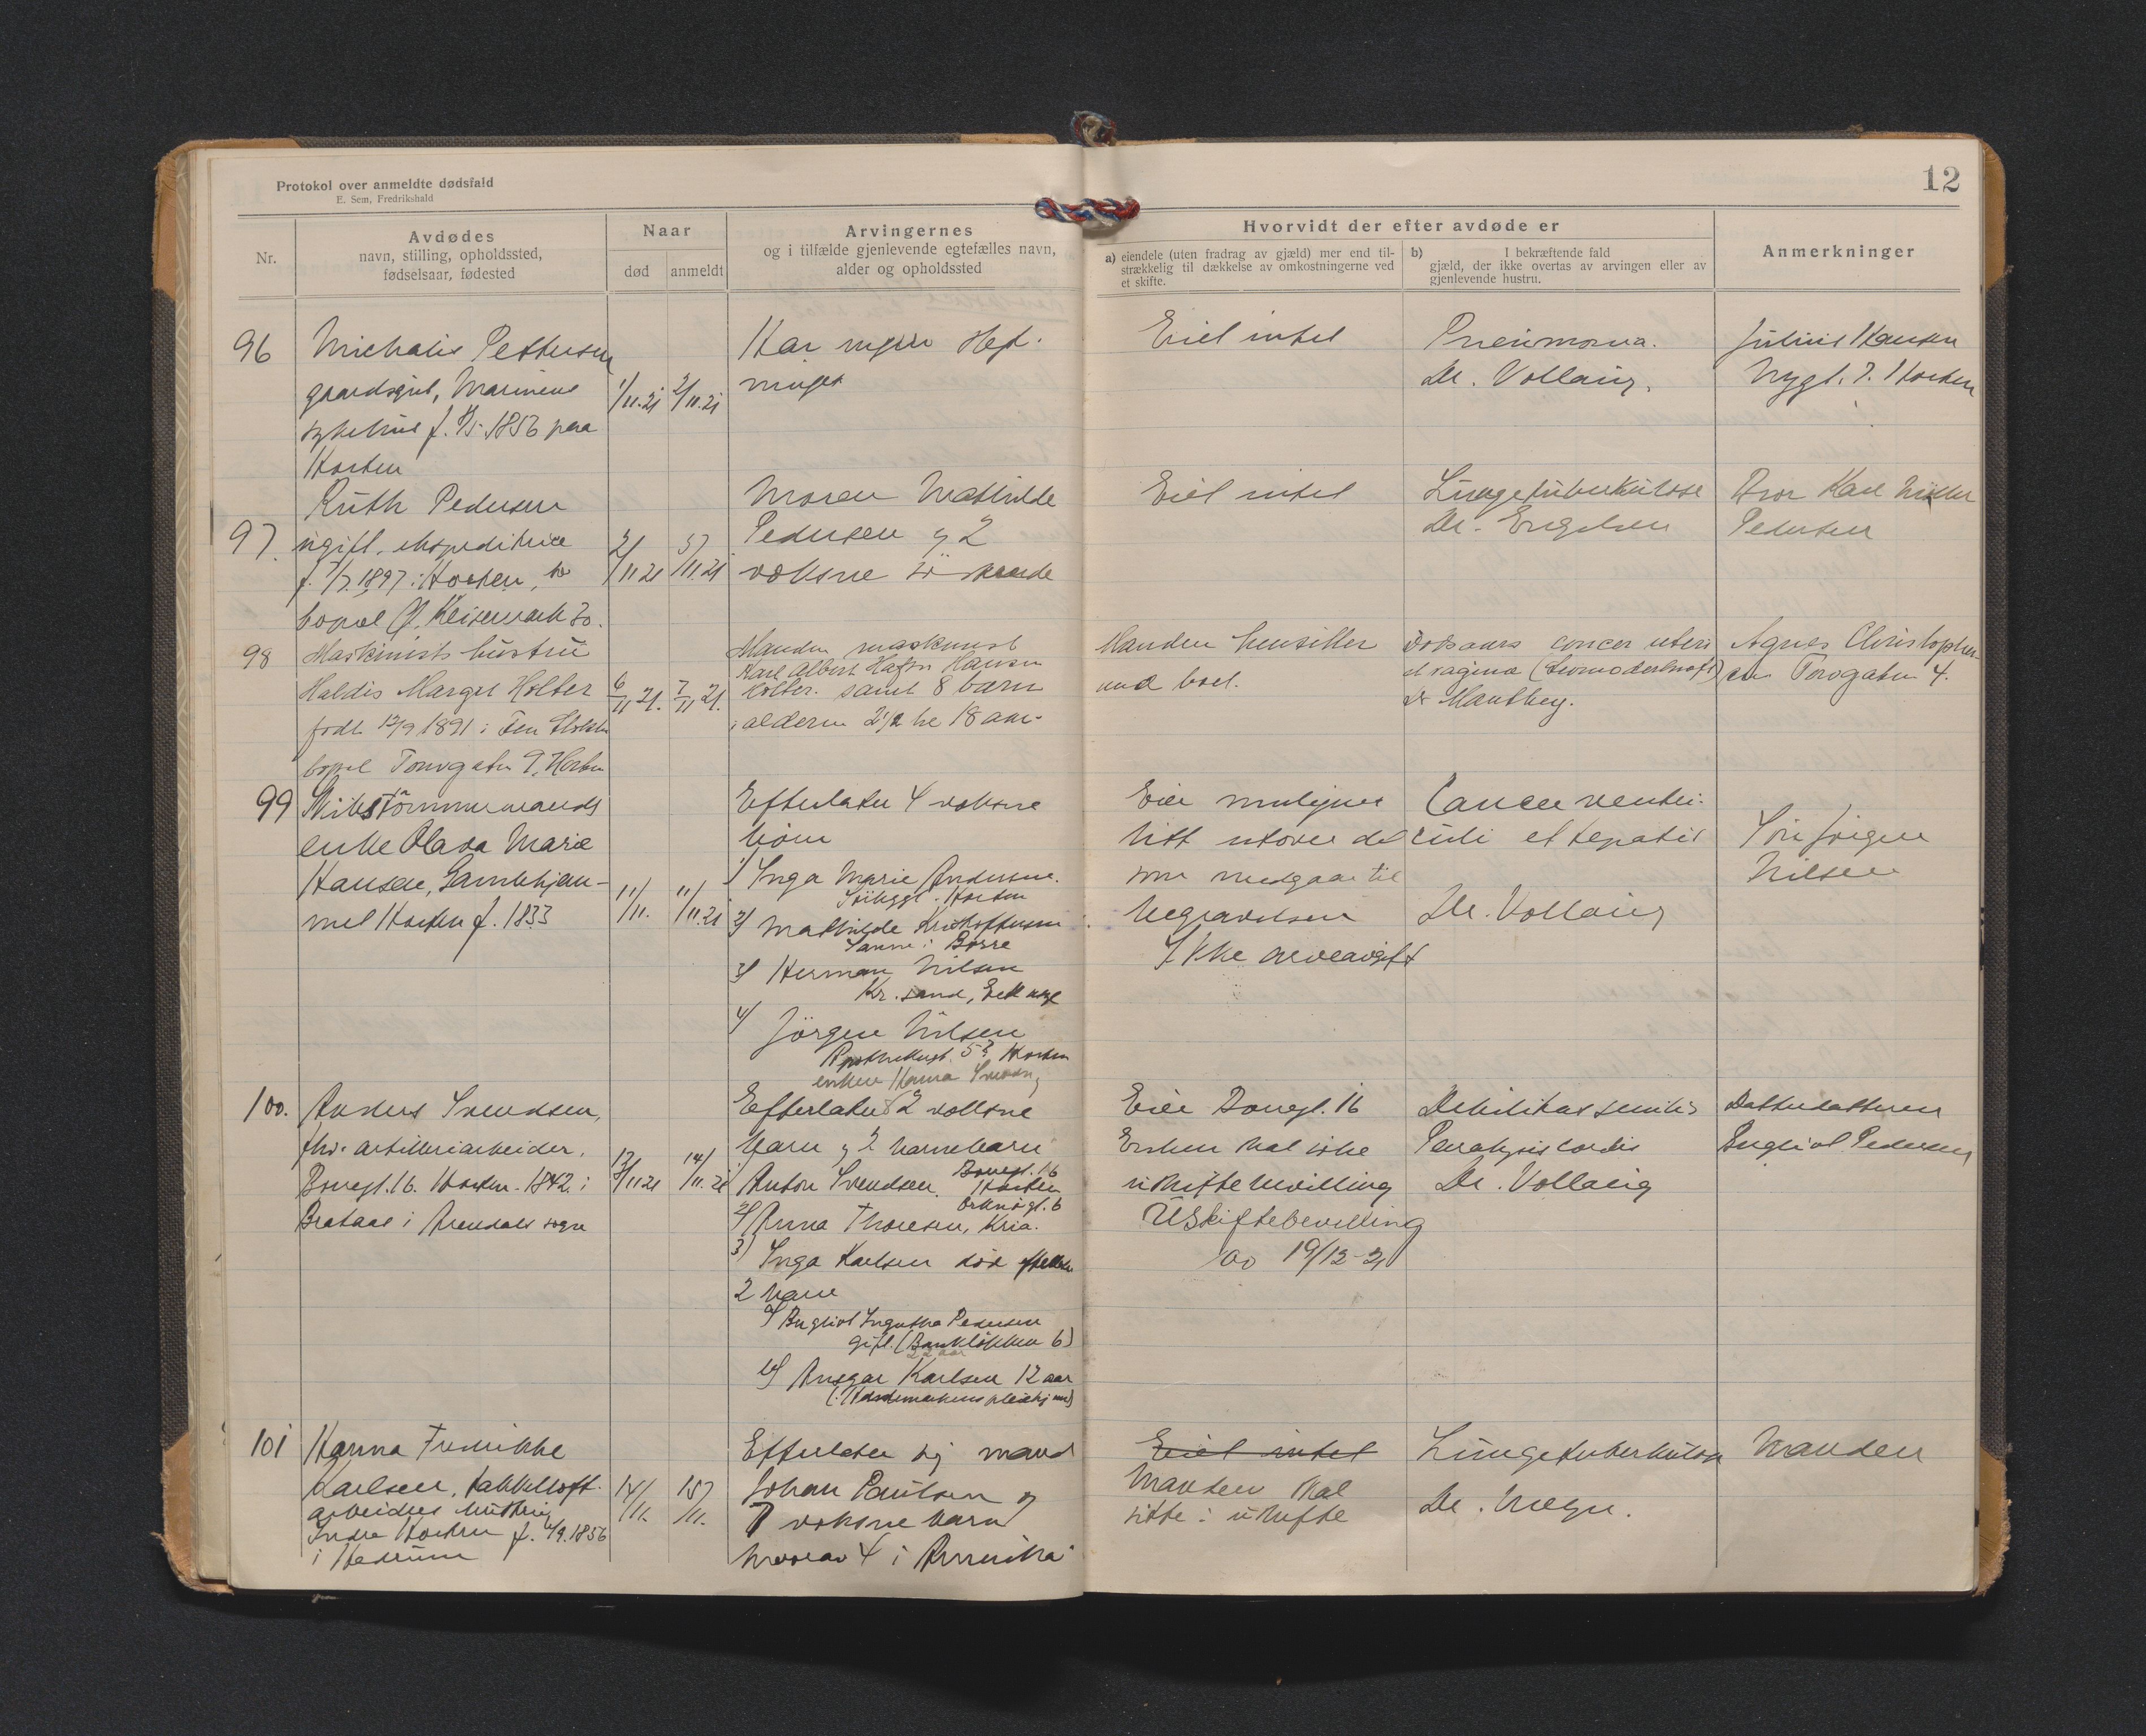 Protokol over anmeldte dødsfald
E. Sem, Fredrikshald
12
Nr.
Avdødes
navn, stilling, opholdssted,
fødselsaar, fødested
Naar
død
anmeldt
Arvingernes
og i tilfælde gjenlevende egtefælles navn,
alder og opholdssted
Hvorvidt der efter avdøde er
a) eiendele (uten fradrag av gjæld) mer end til-
strækkelig til dækkelse av omkostningerne ved
et skifte.
b) I bekræftende fald
gjæld, der ikke overtas av arvingen eller av
gjenlevende hustru.
Anmerkninger
96
Michalis Pettersen
gaardsgut, Marinens
sykehus f. 1856 paa
Horten
1/11.21
2/11.21
Har ingen
Eiet intet
Pneumonia.
Dr. Vollaug.
Julius Hansen
Nygt. 7. Horten
97.
Ruth Pedersen
ugift. ekspeditrice
f. 1897 i Horten,
bopæl Gl. Keisemark 30.
2/11 21
3/11.21
Moren Mathilde
Pedersen og 2
voksne søskende
Eiet intet
Lungetuberkulose
Dr. Engelsen
Bror Karl
Pedersen
98
Maskinists hustru
Haldis Marget Holter
født 12/9 1891 i
bopæl Torvgaten 9, Horten
6/11 21.
7/11 21.
Manden maskinist
Karl Albert Hansen
Holter. samt 8 barn
i alderen 2 1/2 til 18 aar.
Manden hensitter
und boet.
Dødsaars cancer uteri
et vagina (Livmoderkræft)
Dr Manthey.
Agnes Christopher-
sen Torvgaten 4.
99
Skibstømmermands
enke Olava Marie
Hansen, Gamlehjem-
met Horten f. 1833
11/11.
11/11.21
Efterlater 4 voksne
børn
1) Inga Marie Andersen.
Horten
2) Mathilde Kristoffersen
Sanne i Borre
3) Herman Nilsen
Kr. sand,
4) Jørgen Nilsen
Apothekergt. 53 Horten
enken Hanna
Eier muligens
litt utover det
som medgaar til
begravelsen
Ikke arveavgift
Cancer ventri-
culi et hepatis
Dr. Vollaug
Søn Jørgen
Nilsen
100.
Anders Svendsen,
fhv. artilleriarbeider.
Bouegt. 16. Horten. 1842 i
i Arendals sogn
13/11 21
14/11.21
Efterlater 2 voksne
barn og 2 barnebarn
Anton Svendsen. Bouegt. 16
Horten
2) Anna Thoresen, Kria.
3) Inga Karlsen død efterlater
2 barn
a) Bugliot Ingutha Pedersen
gift. (Bankløkken 6)
22 aar
b) Ansgar Karlsen 12 aar
Eier Bouegt. 16
Enken skal ikke
uskiftebevilling
Uskiftebevilling
av 19/12-21
Debilitas senilis
Paralysis cordis
Dr. Vollaug
Datterdatteren
Bugliot Pedersen
101
Hanna Fredrikke
Karlsen, takkelloft-
arbeiders hustru,
Indre Horten f. 4/9.1856
i Hedrum
14/11.
15/11.
Efterlater sig mand
Johan Paulsen og
7 voksne barn
hvorav 4 i Amerika
Eiet intet
Manden skal
sitte i uskifte
Lungetuberkulose
Dr. Meyn.
Manden